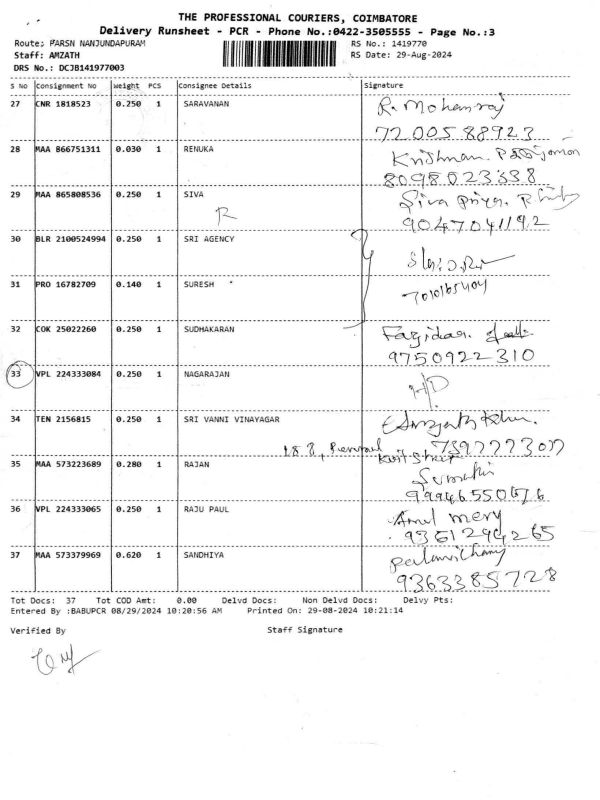 THE PROFESSIONAL COURIERS, COIMBATORE
Delivery Runsheet - PCR - Phone No.:0422-3505555 - Page No.:3
Route: PARSN NANJUNDAPURAM RS No.: 1419770
Staff: AMZATH RS Date: 29-Aug-2024
DRS No.: DCJB141977003
S No Consignment No Weight PCS Consignee Details Signature
27 CNR 1818523 0.250 1 SARAVANAN R. Mohanraj
7200588923
28 MAA 866751311 0.030 1 RENUKA Krishnan.
8098023338
29 MAA 865808536 0.250 1 SIVA Siva priya.
R 9047041192
30 BLR 2100524994 0.250 1 SRI AGENCY
31 PRO 16782709 0.140 1 SURESH
7010165404
32 COK 25022260 0.250 1 SUDHAKARAN
9750922310
33 VPL 224333084 0.250 1 NAGARAJAN H/D
34 TEN 2156815 0.250 1 SRI VANNI VINAYAGAR
35 MAA 573223689 0.280 1 RAJAN
99946550676
36 VPL 224333065 0.250 1 RAJU PAUL Amul mery
9361294265
37 MAA 573379969 0.620 1 SANDHIYA
9363385728
Tot Docs: 37 Tot COD Amt: 0.00 Delvd Docs: Non Delvd Docs: Delvy Pts:
Entered By :BABUPCR 08/29/2024 10:20:56 AM Printed On: 29-08-2024 10:21:14
Verified By Staff Signature